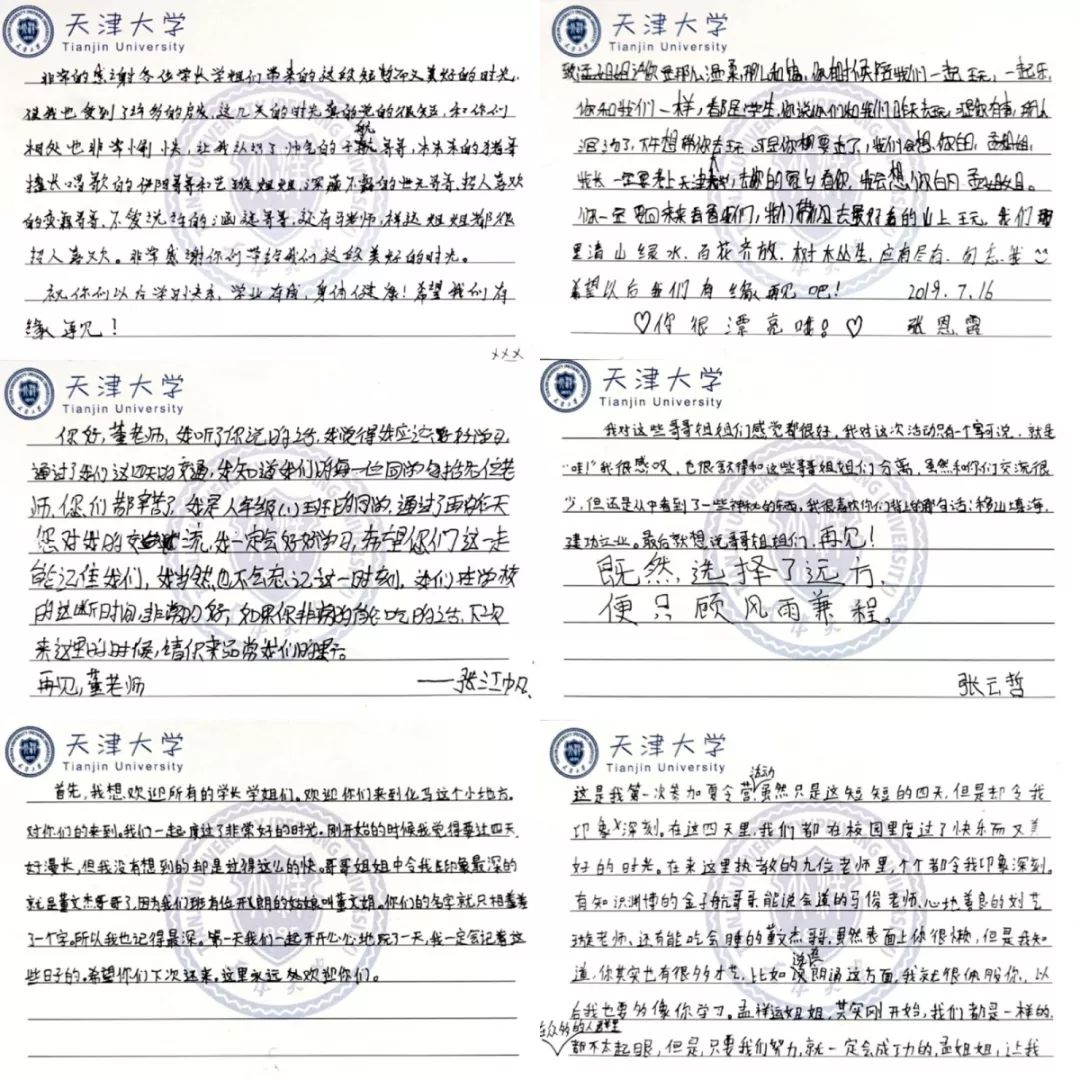 天津大学
Tianjin University
非常的感谢各位学长学姐们带来的这段短暂而又美好的时光,
使我也受到了许多的启发,这几天的时光真的觉的很短,和你们
相处也非常愉快,让我认识了帅气的子航哥哥,未未来的猪哥
擅长唱歌的伊阳哥哥和艺璇姐姐,深藏不露的世元哥哥,招人喜欢
的哥哥,不爱说话的涵廷哥哥,还有马老师,祥运姐姐都很
招人喜欢。非常感谢你们带给我们这段美好的时光。
祝你们以后学习快乐,学业有成,身体健康!希望我们有
缘再见!
×××
天津大学
Tianjin University
致孟姐姐:你是那么温柔,那么和蔼,你随时候陪我们一起玩,一起乐
你和我们一样,都是学生,你说你们和我们去玩,
了,想带你去玩,可是你要走了,我们会想你的,孟姐姐,
我长一定要考上天津大学,去你的家乡看你,我会想你的,孟姐姐。
你一定要回来看看我们,我们去最好看的山上玩,我们那
里清山绿水,百花齐放,树木丛生,应有尽有,勿忘我
希望以后我们有缘再见吧! 2019.7.16
♡你很漂亮哦!♡ 张恩霞
天津大学
Tianjin University
你好,董老师,我听了你说的话,我觉得我应该更好好学习
通过了我们这四天的交通,我知道我们的每一位同学包括先位老
师,你们都辛苦了,我是八年级(1)班的同学,通过了两天
您对我的交流,我一定会好好学习,希望你们这一走
能记住我们,我当然也不会忘记这一时刻,我们在学校
的这断时间,非常的好,如果你非常的能吃的话,下次
来这里的时候,请你来品常我们的
再见,董老师 ——张江帆
天津大学
Tianjin University
我对这些哥哥姐姐们感觉都很好,我对这次活动只有一个字可说,就是
“哇!”我很感叹,也很舍得和这些哥哥姐姐们分离,虽然和你们交流很
少,但还是从中看到了一些神秘的东西,我很喜欢你们背上的那句话:移山填海,
建功立业。最后就想说哥哥姐姐们,再见!
既然,选择了远方,
便只顾风雨兼程。
张云哲
天津大学
Tianjin University
首先,我想欢迎所有的学长学姐们。欢迎你们来到化马这个小地方。
对你们的来到。我们一起度过了非常好的时光。刚开始的时候我觉得要过四天
好漫长,但我没有想到的却是过得这么的快。哥哥姐姐中令我去印象最深的
就是董文杰哥哥了,因为我们班有位开朗的姑娘叫董文娟。你们的名字就只相差着
了一个字。所以我也记得最深。第一天我们一起开开心心地玩了一天,我一定会记着这
些日子的。希望你们下次还来。这里永远处欢迎你们。
天津大学
Tianjin University
这是我第一次参加夏令营活动虽然只是这短短的四天,但是却令我
印象深刻。在这四天里,我们都在校园里度过了快乐而又美
好的时光。在来这里执教的九位老师里,个个都令我印象深刻。
有知识渊博的金子航哥哥,能说会道的马俊老师,心地善良的刘艺
璇老师,还有能吃会睡的董文杰哥哥,虽然表面上你很懒,但是我知
道,你其实也有很多才艺,比如演朗诵这方面,我就很佩服你,以
后我也要多像你学习。孟祥运姐姐,其实刚开始,我们都是一样的,
在众多的人群里都不太起眼,但是,只要我们努力,就一定会成功的,孟姐姐,让我